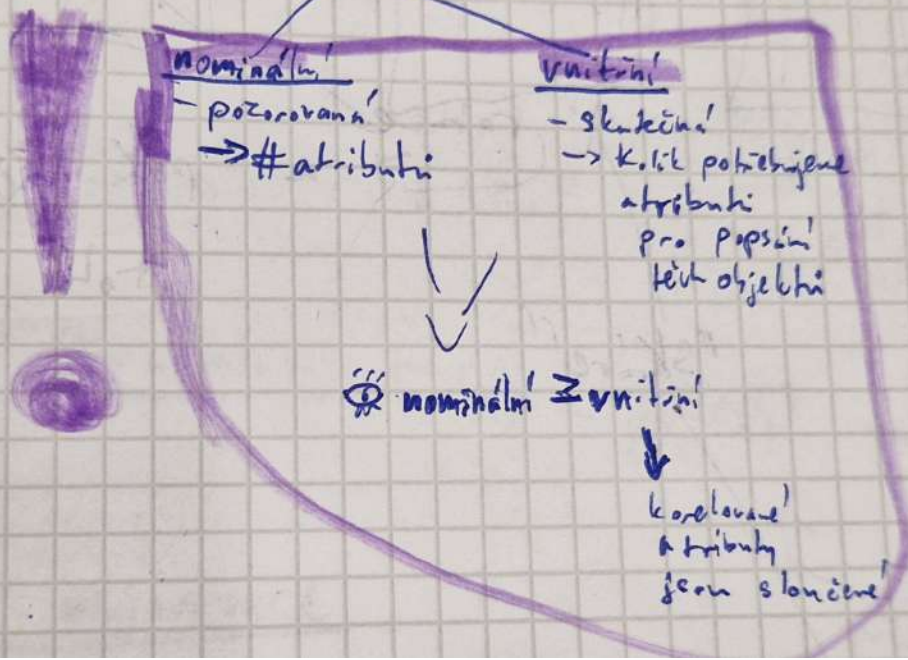 nominální
- pozorovaná
→ # atributů
vnitřní
- skutečná
→ kolik potřebujeme
atributů
pro popsání
těch objektů
nominální ≥ vnitřní
korelované
atributy
jsou sloučené